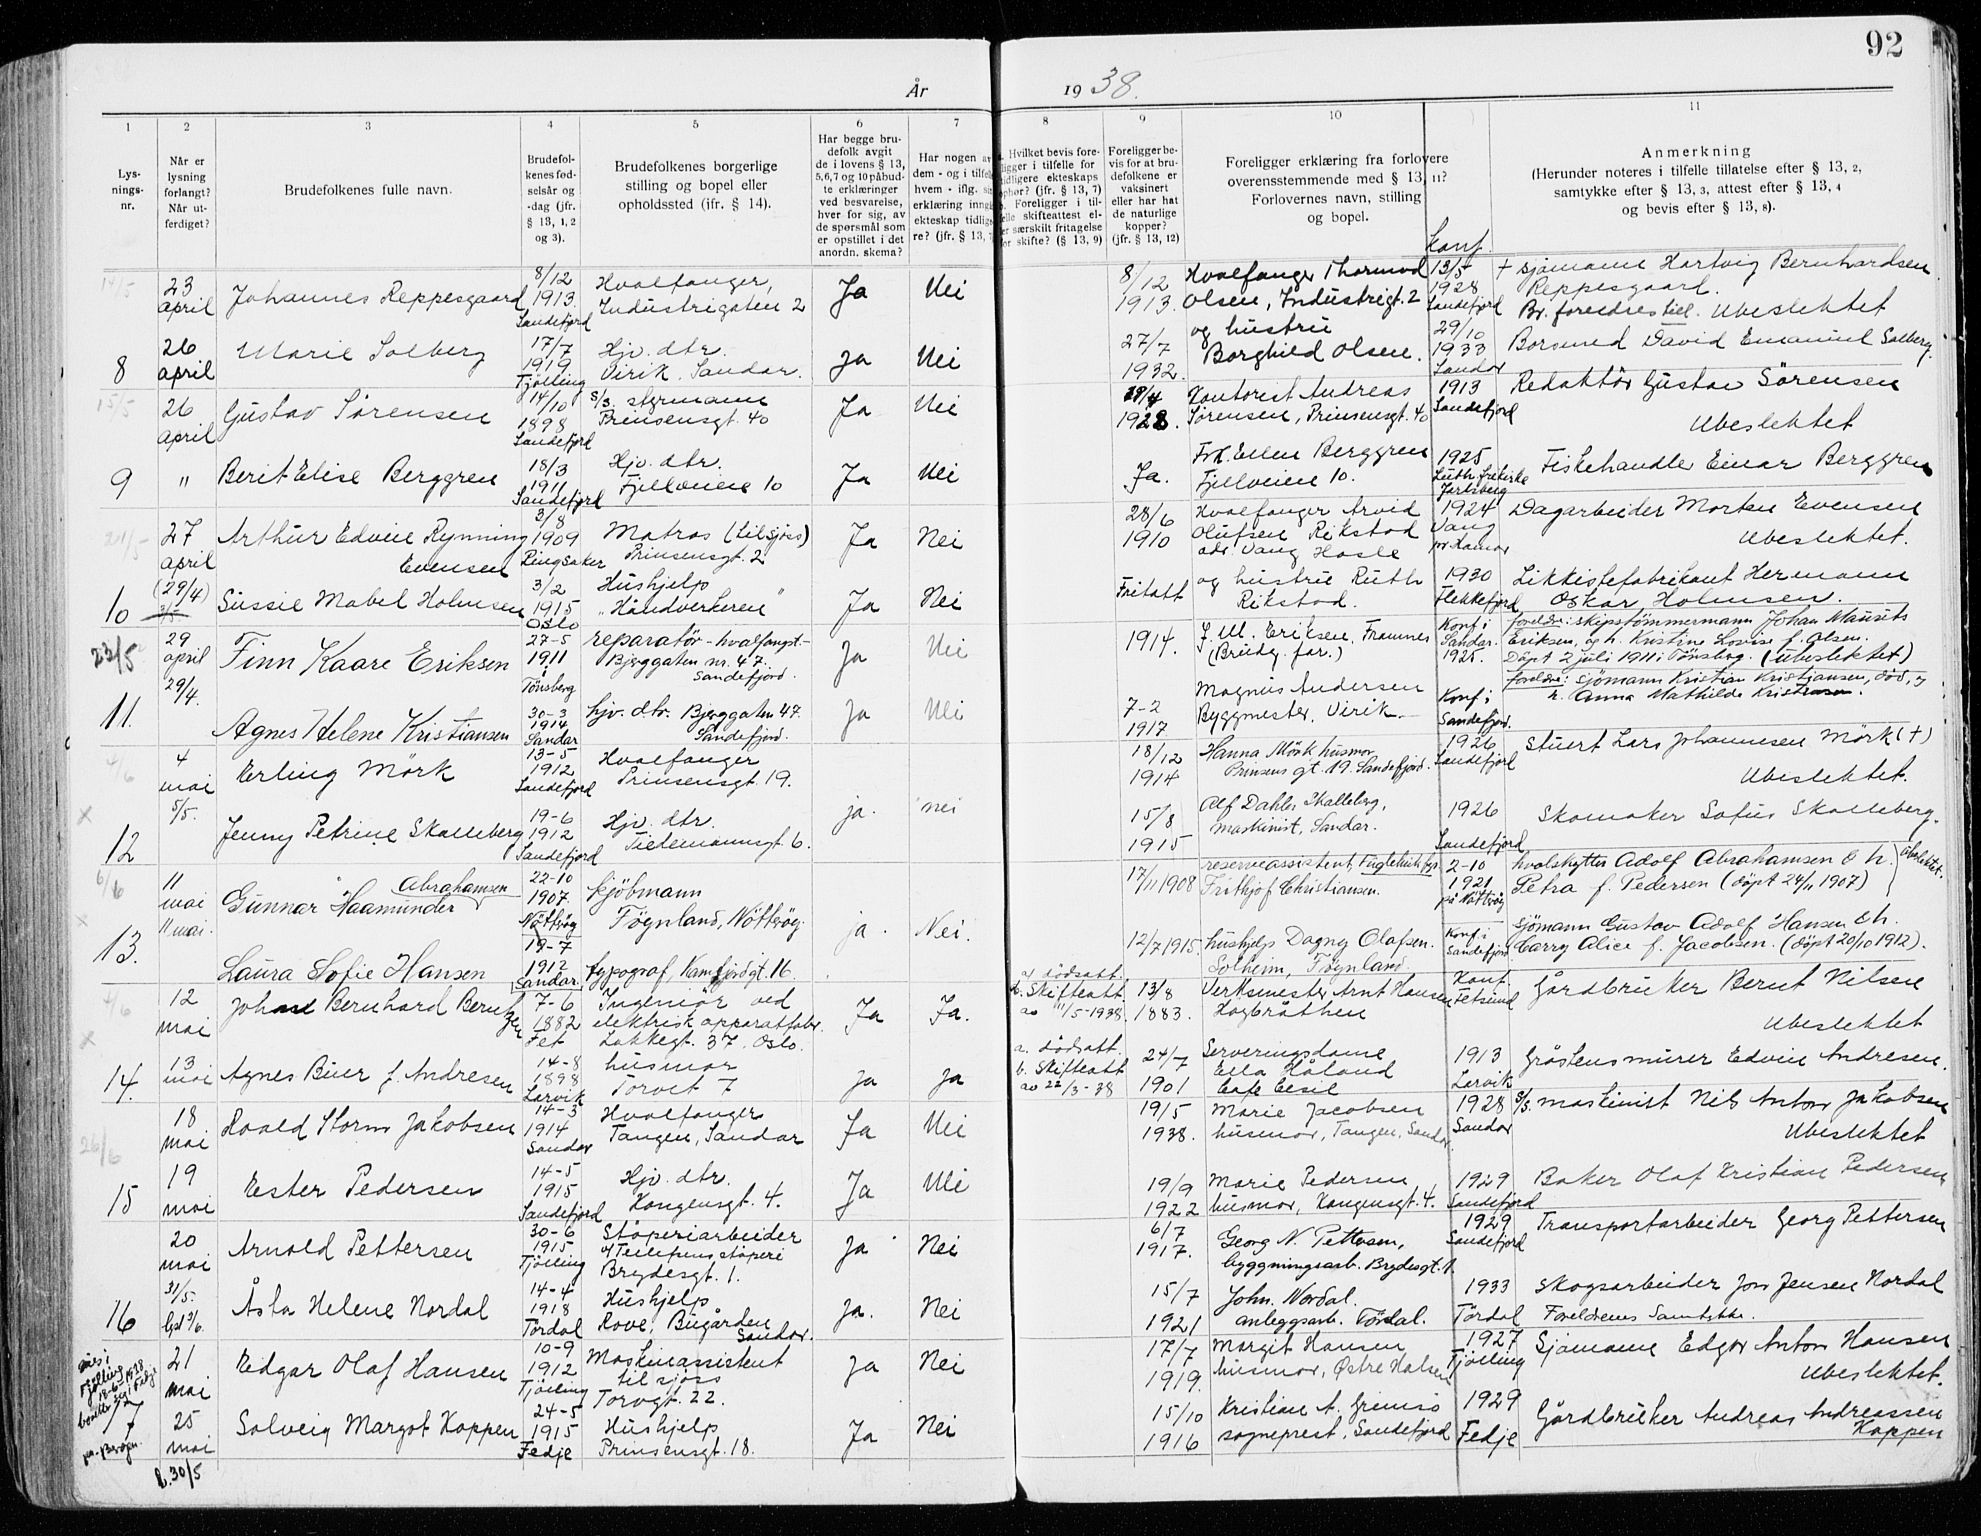 92
År 1938.
1
2
3
4
5
6
7
8
9
10
11
Lys-
nings-
nr.
Når er
lysning
forlangt?
Når ut-
ferdiget?
Brudefolkenes fulle navn.
Brudefol-
kenes fød-
selsår og
-dag (jfr.
§ 13, 1, 2
og 3).
Brudefolkenes borgerlige
stilling og bopel eller
opholdssted (ifr. § 14).
Har begge bru-
defolk avgit
de i lovens § 13,
5,6,7 og 10 påbud-
te erklæringer
ved besvarelse,
hver for sig, av
de spørsmål som
er opstillet i det
anordn. skema?
Har nogen av
dem - og i tilfelle
hvem - iflg. sin
erklæring inngå
ekteskap tidlige-
re? (jfr. § 13, 7
Hvilket bevis fore-
ligger i tilfelle for
tidligere ekteskaps
ophør? (jfr. § 13, 7)
b. Foreligger i til-
felle skifteattest el-
ler særskilt fritagelse
for skifte? (§ 13, 9)
Foreligger be-
vis for at bru-
defolkene er
vaksinert
eller har hat
de naturlige
kopper?
(jfr. § 13, 12)
Foreligger erklæring fra forlovere
overensstemmende med § 13, 11?
Forlovernes navn, stilling
og bopel.
Konf.
Anmerkning
(Herunder noteres i tilfelle tillatelse efter § 13, 2,
samtykke efter § 13, 3, attest efter § 13, 4
og bevis efter § 13, 8).
23 april Johannes Reppesgaard 8/12 1913. Sandefjord Hvalfanger, Industrigaten 2 Ja Nei 8/12 1913. Hvalfanger Thormod Olsen, Industrigt. 2 13/5 1928 Sandefjord + sjømann Hartvig Bernhardsen Reppesgaard. Br. foreldres till. Ubeslektet
8 26 april Marie Solberg 17/7 1919 Tjölling Hjv. dtr. Virik. Sandar. Ja Nei 27/7 1932. og hustru Borghild Olsen. 29/10 1933 Sandar David Emanuel Solberg.
15/5 26 april Gustav Sörensen 14/10 1898 Sandefjord s/s. styrmann Prinsensgt. 40 Ja Nei 1928. Kontorist Andreas Sörensen, Prinsensgt. 40 1913 Sandefjord Redaktör Gustav Sörensen Ubeslektet
9 " Berit Elise Berggren 18/3 1911 Sandefjord Hjv. dtr. Fjellveien 10 Ja Nei Ja. Frk. Ellen Berggren Fjellveien 10. 1925 Luth. frikirke Jarlsberg Fiskehandler Einar Berggren
27 april Arthur Edvin Rynning Evensen 3/8 1909 Ringsaker Matros (tilsjøss) Prinsensgt. 2 Ja Nei 28/6 1910 Hvalfanger Arvid Olufsen Rikstad adr. Vang Hasle 1924 Vang pr. Hamar Dagarbeider Morten Evensen Ubeslektet.
10 (29/4) 3/5 Sussie Mabel Holmsen 3/2 1915 Oslo Hushjelp "Håndverkeren" Ja Nei Fritatt og hustru Ruth Rikstad. 1930 Flekkefjord Likkistefabrikant Hermann Oskar Holmsen.
23/5 29 april Finn Kaare Eriksen 27-5 1911 Tönsberg reparatör - hvalfangst. - Bjerggaten nr. 47. Sandefjord. Ja Nei 1914. J. M. Eriksen, Framnes (Brudg. far.) Konf. i Sandar. 1925. foreldre: skipstömmermann Johan Mauritz Eriksen, og h. Kristine Lovise f. Olsen. Döpt 2 juli 1911 i Tönsberg. (Ubeslektet)
11. 29/4. Agnes Helene Kristiansen 30-3 1914 Sandar hjv. dtr. Bjerggaten 47. Sandefjord. Ja Nei 7-2 1917 Magnus Andersen Byggmester, Virik. Konf. i Sandefjord. foreldre: sjömann Kristian Kristiansen, död, og h. Anna Mathilde Kristiansen.
4 mai Erling Mörk 13-5 1912 Sandefjord Hvalfanger Prinsensgt. 19. 18/12 1914 Hanna Mörk husmor Prinsens gt. 19. Sandefjord. 1926 Sandefjord Stuert Lars Johannesen Mörk (+) Ubeslektet.
12 5/5. Jenny Petrine Skalleberg 19-6 1912 Sandefjord Hjv. dtr. Tidemannsgt. 6. ja. nei 15/8 1915 Alf Dahler Skalleberg, maskinist, Sandar. 1926 Sandefjord Skomaker Sofus Skalleberg.
6/6 11 mai Gunnar Haamunder Abrahamsen 22-10 1907. Nötteröy kjöbmann Föynland, Nötteröy. 17/11 1908 reserveassistent, Fuglehuk fyr. Frithjof Christiansen. 2-10 1921 på Nötteröy hvalskytter Adolf Abrahamsen & h. Petra f. Pedersen (döpt 24/11 1907) Ubeslektet.
13. 11 mai. Laura Sofie Hansen 19-7 1912 Sandar. typograf, Kamfjordgt. 16. ja. Nei. 12/7 1915. hushjelp Dagny Olafsen. Solheim, Föynland. Konf. i Sandefjord Sjömann Gustav Adolf Hansen & h. Carry Alice f. Jacobsen. (döpt 20/10 1912).
4/6 12 mai Johan Bernhard Berntzen 7-6 1882 Fet Ingeniör ved elektrisk apparatfabr. Lakkegt. 37. Oslo. Ja Ja. a. dödsatt. b. Skifteatt. av 11/5-1938. 13/8 1883. Verksmester Arnt Hansen Konf. Fetsund Gårdbruker Bernt Nilsen Ubeslektet
14. 13 mai Agnes Buer f. Andresen 14-8 1898 Larvik husmor Torvet 7 ja ja a. dödsatt. b. Skifteatt. av 22/3-38 24/7 1901 Serveringsdame Ella Håland Cafe Cecil 1913 Larvik Gråstensmurer Edvin Andresen.
26/6 18 mai Roald Storm Jakobsen 14-3 1914 Sandar Hvalfanger Tangen, Sandar Ja Nei 19/5 1938. Marie Jacobsen husmor, Tangen, Sandar 1928 Sandar s/s. maskinist Nils Anton Jakobsen Ubeslektet
15 19 mai Ester Pedersen 14-5 1915 Sandefjord Hjv. dtr. Kongensgt. 4. Ja Nei 19/9 1922 Marie Pedersen husmor, Kongensgt. 4. 1929 Sandefjord Baker Olaf Kristian Pedersen
20 mai Arnold Pettersen 30-6 1915 Tjölling Støperiarbeider Brydesgt. 1. Ja Nei 6/7 1917. Georg N. Pettersen, byggningsarb. Brydesgt. 1. 1929 Sandefjord Transportarbeider Georg Pettersen
16 31/5. Åsta Helene Nordal 14-4 1918 Tördal Hushjelp Rove, Bugården Sandar. Ja. Nei 15/7 1921 John. Nordal. anleggsarb. Tördal. 1933 Tördal Skogsarbeider Jon Jensen Nordal Foreldrenes Samtykke.
21 mai Edgar Olaf Hansen 10-9 1912 Tjölling Maskinassistent til sjøss Torvgt. 22. Ja Nei 17/7 1919. Margit Hansen husmor, Østre Halsen 1927 Tjölling Sjømann Edgar Anton Hansen Ubeslektet.
17 25 mai Solveig Margot Koppen 24-5 1915 Fedje Hushjelp Prinsensgt. 18. Ja Nei 15/10 1916 Kristian A. Grimsö sogneprest, Sandefjord 1929 Fedje Gårdbruker Andreas Andreassen Koppen
l. 30/5